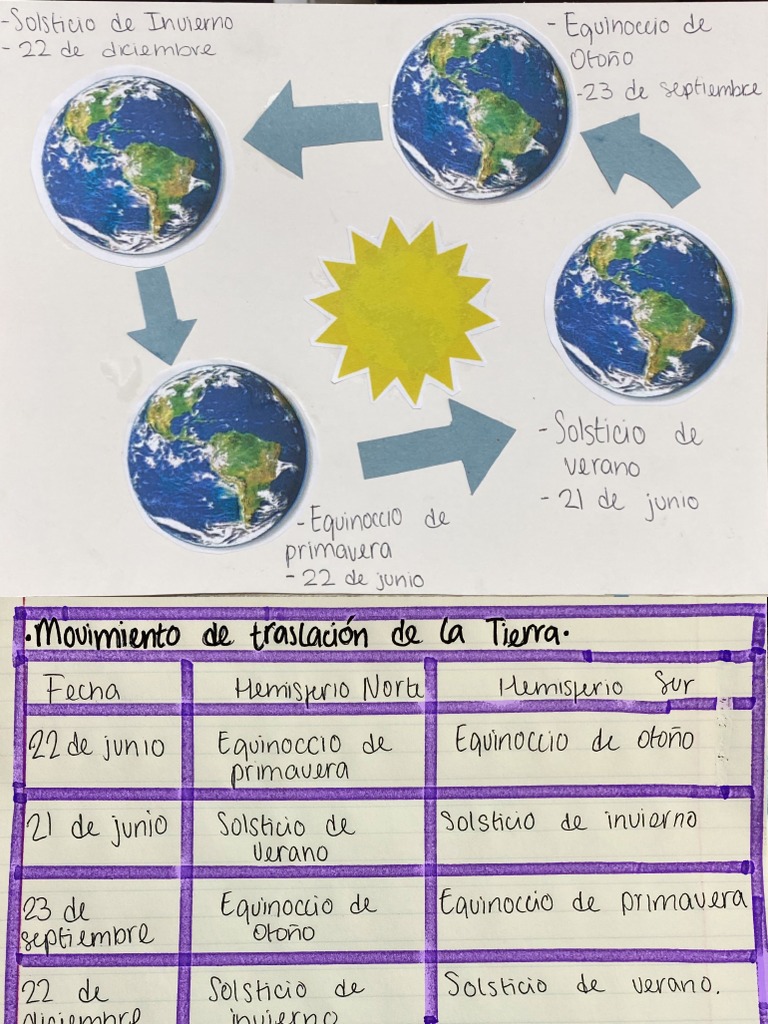 -Solsticio de Invierno
- 22 de diciembre
- Equinoccio de
Otoño
-23 de septiembre
- Solsticio de
verano
- 21 de junio
-Equinoccio de
primavera
- 22 de junio
·Movimiento de traslación de la Tierra·
Fecha Hemisferio Norte Hemisferio Sur
22 de junio Equinoccio de Equinoccio de otoño
primavera
21 de junio Solsticio de Solsticio de invierno
verano
23 de Equinoccio de Equinoccio de primavera
septiembre otoño
22 de Solsticio de Solsticio de verano.
diciembre invierno